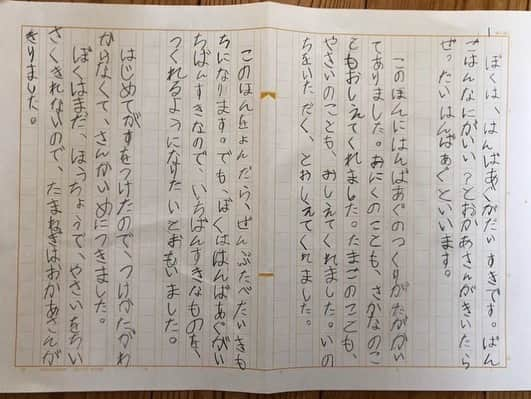 ぼくは、はんばあぐがだいすきです。ばん
ごはんなにがいい？とおかあさんがきいたら
ぜったいはんばあぐといいます。
このほんにはんばあぐのつくりかたがかい
てありました。おにくのことも、さかなのこ
ともおしえてくれました。たまごのことも、
やさいのことも、おしえてくれました。いの
ちをいただく、とおしえてくれました。
このほんをよんだら、ぜんぶたべたいきも
ちになります。でも、ぼくははんばあぐがい
ちばんすきなので、いちばんすきなものを、
つくれるようになりたいとおもいました。
はじめてがすをつけたので、つけかたがわ
からなくて、さんかいめにつきました。
ぼくはまだ、ほうちょうで、やさいをちい
さくきれないので、たまねぎはおかあさんが
きりました。